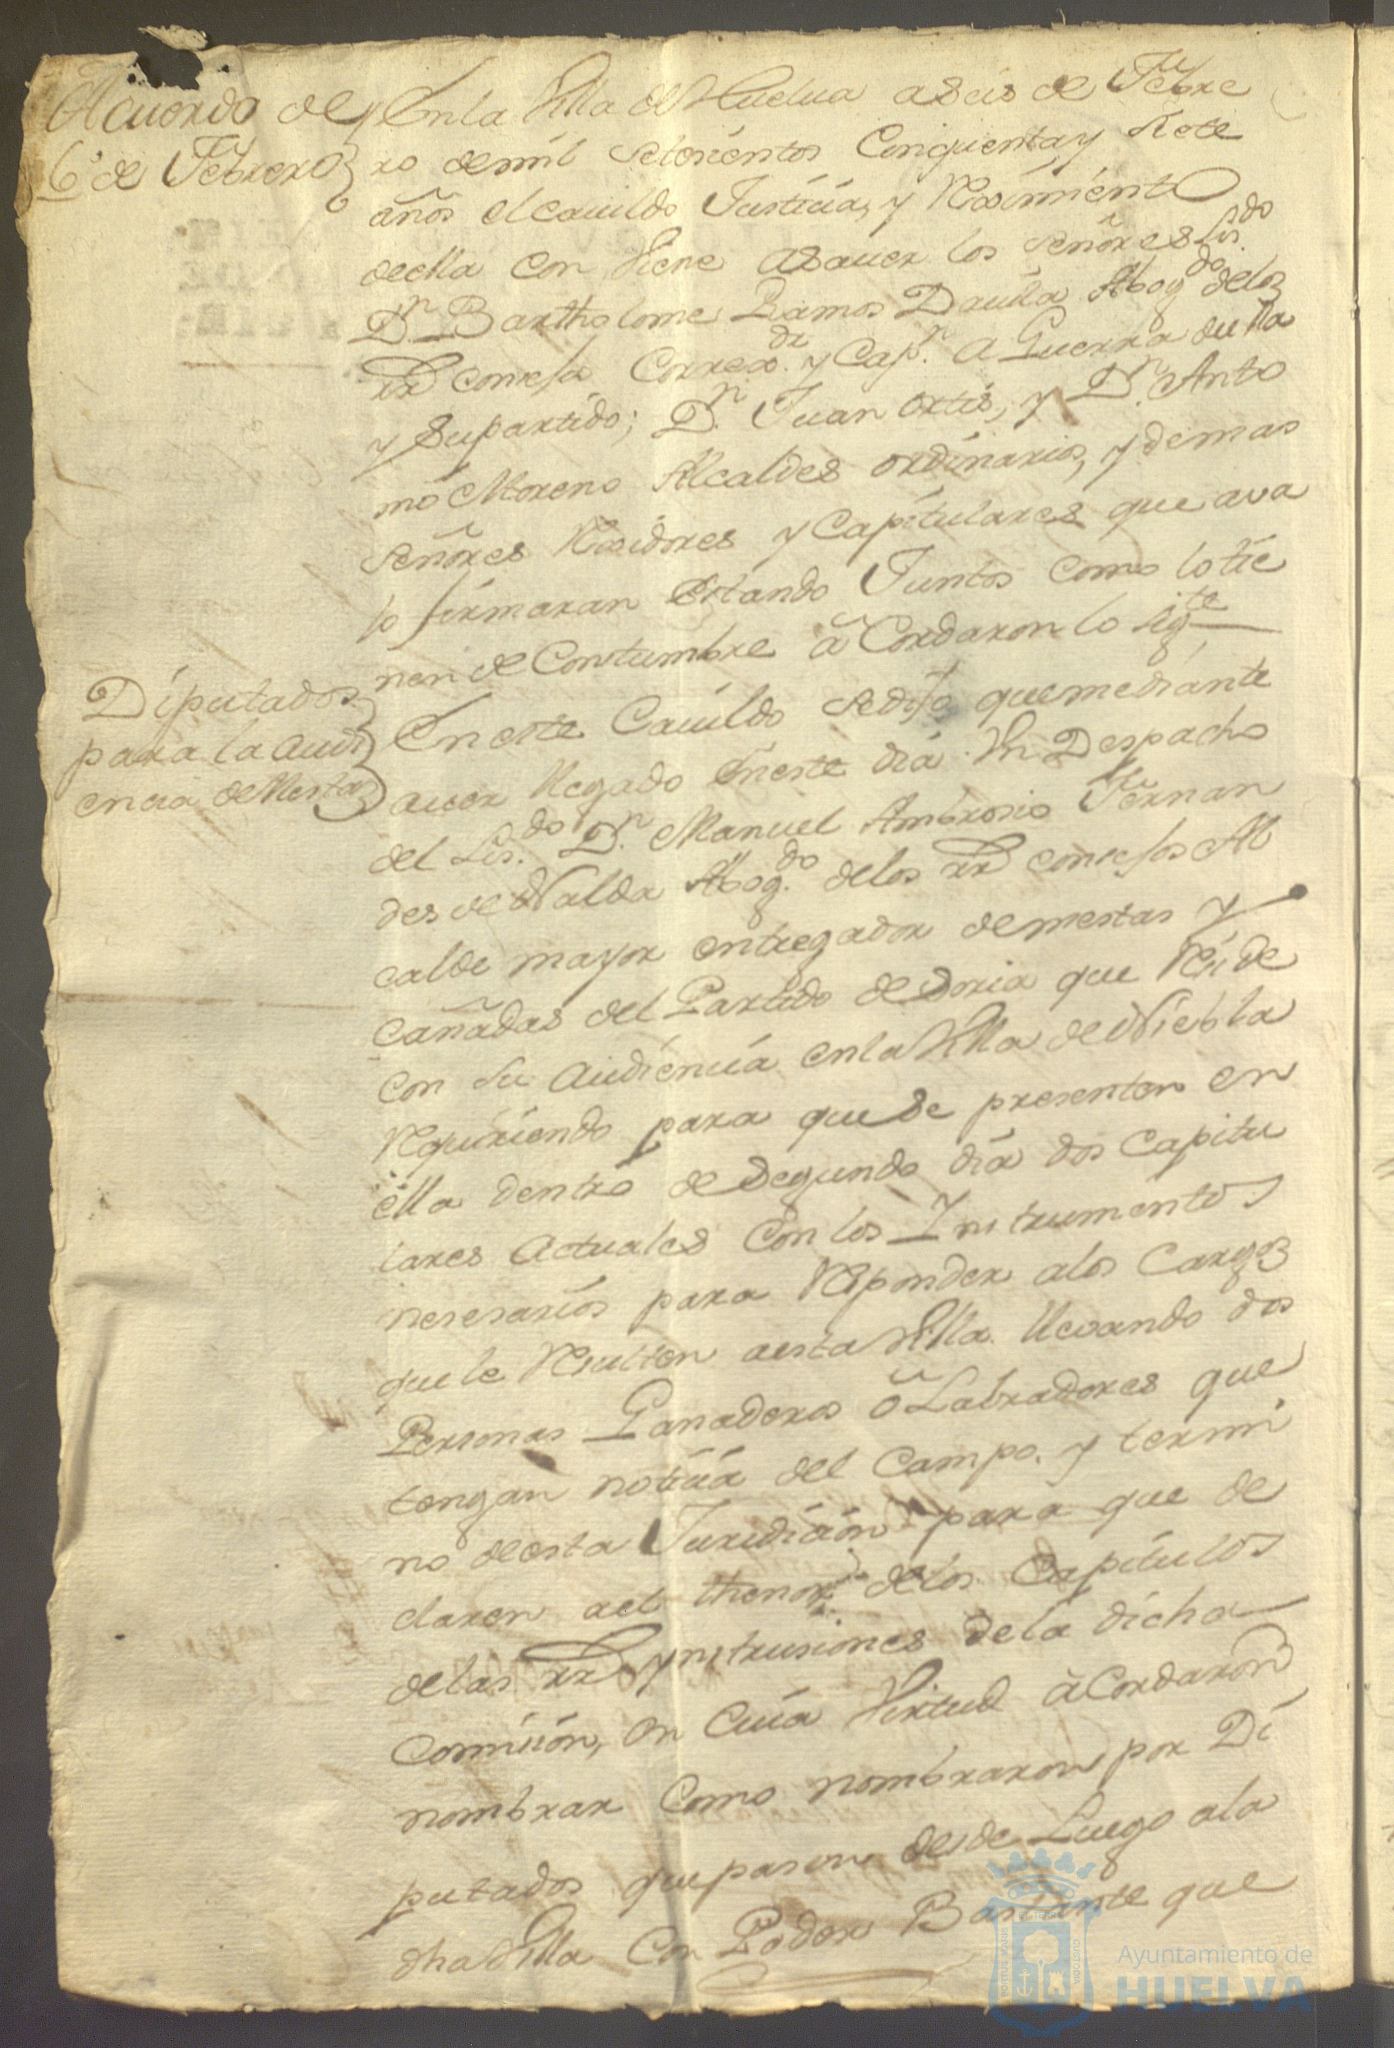 Acuerdo de
6º de Febrero
En la Villa de Huelua a seis de Febre
ro de mil setesientos Cinquenta y siete
años el cauildo Justicia, y Reximiento
de ella con Viene a sauer los Señores Lis.do
D.n Bartholome Ramos Dauila Abog.do de los
RR consejos Correx.dr y Cap.n a Guerra de ella
y su partido; D.n Juan Ortis, y D.n Anto
nio Moreno Alcaldes ordinarios, y demas
Señores Rexidores y Capitulares que ava
jo firmaran Estando Juntos como lo tie
nen de Constumbre ã Cordaron lo sig.te
Diputados
para la Audi
encia de Mesta
En este Cauildo se dijo que mediante
auer llegado en este dia Un Despacho
del Lis.do D.n Manuel Ambrosio Fernan
des de Nalda Abog.do de los RR consejos Al
calde mayor entregador de mestas y
cañadas del Partido de Soria que Reside
con su Audiencia en la Villa de Niebla
Requiriendo para que se presenten en
ella dentro de segundo dia dos Capitu
lares Actuales Con los Instrumentos
nesesarios para Responder a los Cargos
que le Resulten a esta Villa llevando dos
Personas Ganaderos õ Labradores que
tengan noticia del Campo. y termi
no de esta Juridicion para que de
claren a el thenor de los Capitulos
de las RR ynstrusiones de la dicha
Comision, en Cuia Virtud à Cordaron
nombrar Como nombraron por Di
putados que pasen desde Luego a la
dha Villa Con Poder Bastante que
Ayuntamiento de
HUELVA